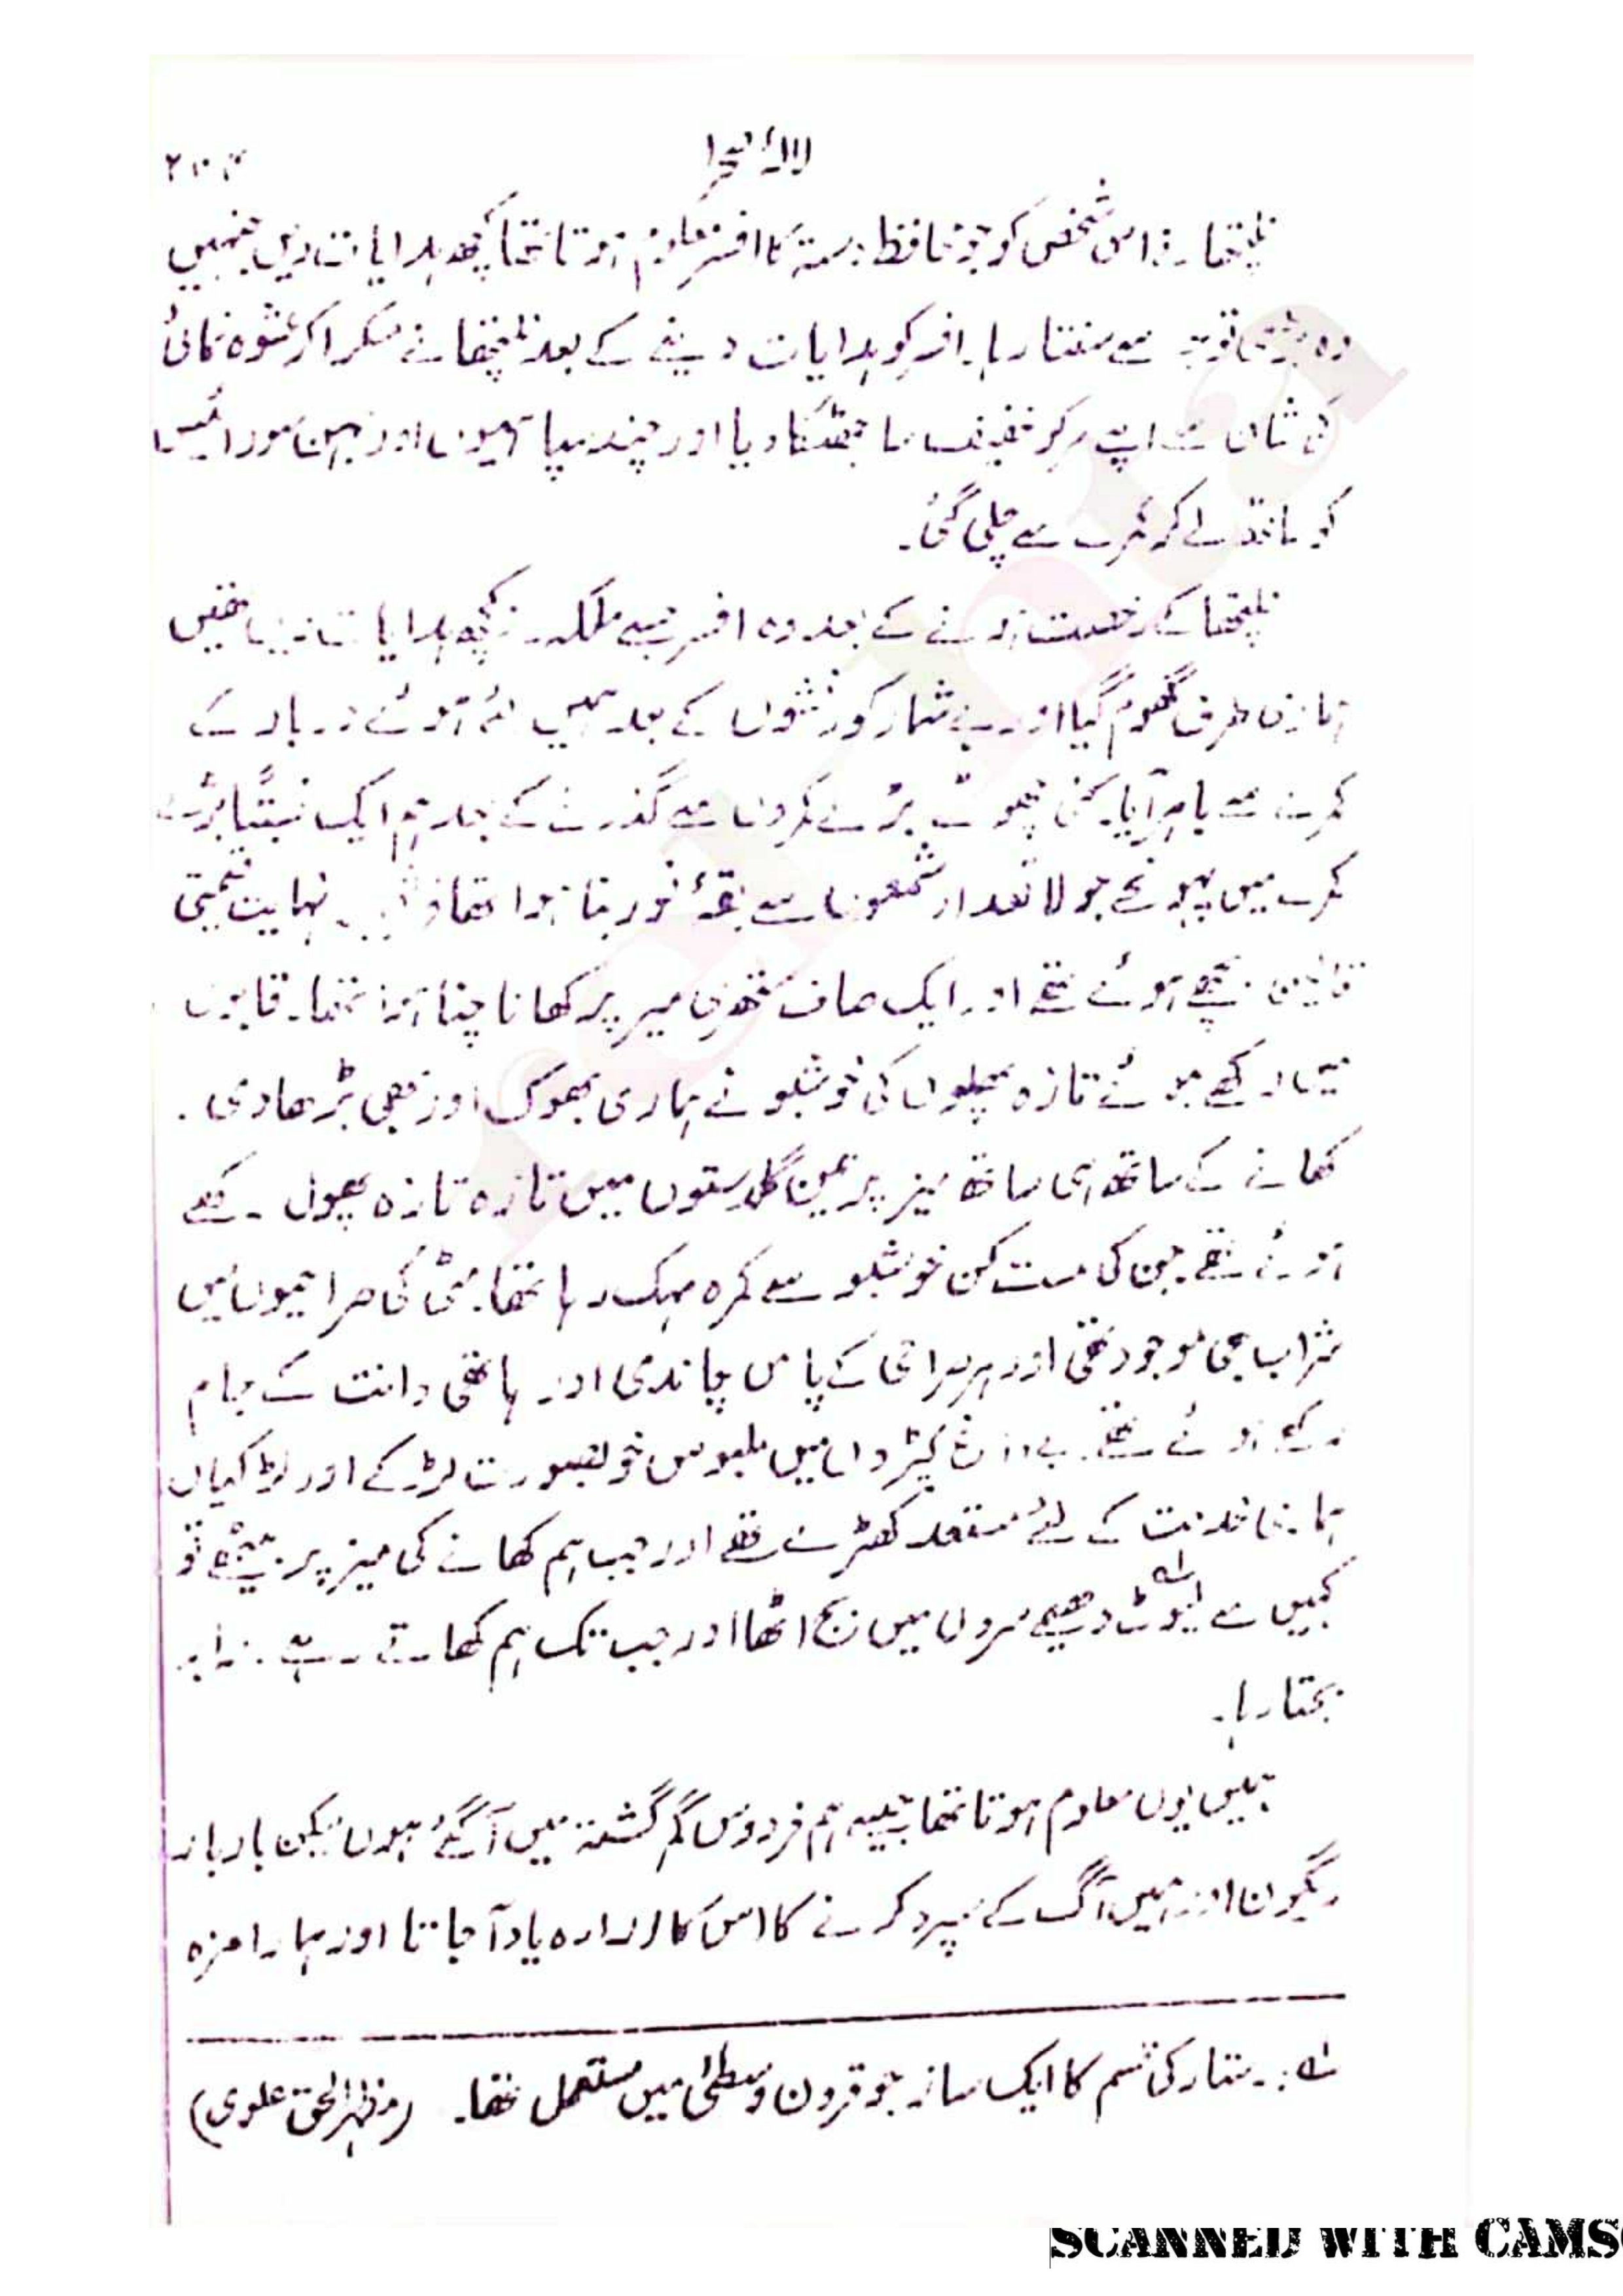 لالۂ صحرا
۲۰۴
نلیختھا نے اس شخص کو جو محافظ دستہ کا افسر معلوم ہوتا تھا کچھ ہدایات دیں جنہیں
وہ بڑی توجہ سے سنتا رہا۔ افسر کو ہدایات دینے کے بعد نلیختھا نے مسکرا کر عشوہ نمائی
کی شان سے اپنے سر کو خفیف سا جھٹکا دیا اور چند سپاہیوں اور جین مورائیس
کو ساتھ لے کر کمرے سے چلی گئی۔
نلیختھا کے رخصت ہونے کے بعد وہ افسر جسے ملکہ نے کچھ ہدایات دیں تھیں
ہماری طرف گھوم گیا اور بے شمار کورنشوں کے بعد ہمیں لئے ہوئے دربار کے
کمرے سے باہر آیا۔ کئی چھوٹے بڑے کمروں سے گذرنے کے بعد ہم ایک نسبتاً بڑے
کمرے میں پہونچے جو لاتعداد شمعوں سے بقعۂ نور بنا ہوا تھا نہایت قیمتی
قالین بچھے ہوئے تھے اور ایک صاف ستھری میز پر کھانا چنا ہوا تھا۔ قابوں
میں رکھے ہوئے تازہ پھلوں کی خوشبو نے ہماری بھوک اور بھی بڑھا دی۔
کھانے کے ساتھ ہی ساتھ میز پر تین گلدستوں میں تازہ تازہ پھول رکھے
ہوئے تھے جن کی مست کن خوشبو سے کمرہ مہک رہا تھا۔ مٹی کی صراحیوں میں
شراب بھی موجود تھی اور ہر صراحی کے پاس چاندی اور ہاتھی دانت کے جام
رکھے ہوئے تھے۔ بے داغ کپڑوں میں ملبوس خوبصورت لڑکے اور لڑکیاں
ہماری خدمت کے لئے مستعد کھڑے تھے اور جب ہم کھانے کی میز پر بیٹھے تو
کہیں سے لیوٹ؎۱ دھیمے سروں میں بج اٹھا اور جب تک ہم کھاتے رہے برابر
بجتا رہا۔
ہمیں یوں معلوم ہوتا تھا جیسے ہم فردوس گم گشتہ میں آ گئے ہوں لیکن بار بار
ریگون اور ہمیں آگ کے سپرد کرنے کا اس کا ارادہ یاد آ جاتا اور ہمارا مزہ
؎۱:۔ ستار کی قسم کا ایک ساز جو قرون وسطیٰ میں مستعمل تھا۔ (مظہر الحق علوی)
SCANNED WITH CAMS